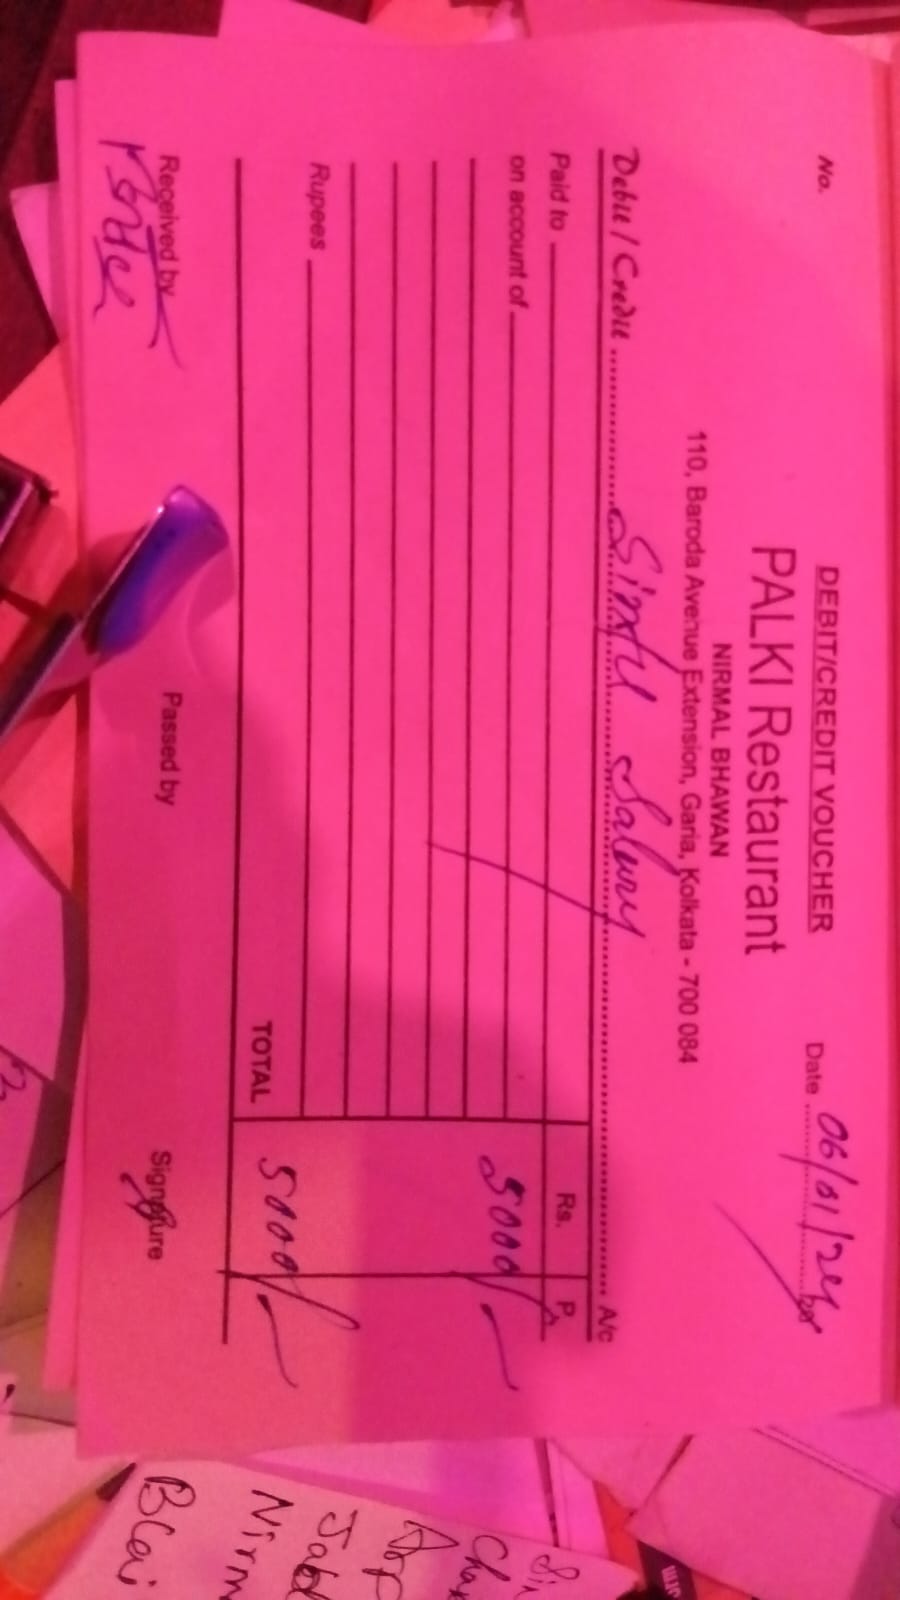 DEBIT/CREDIT VOUCHER
No.
Date 06/01/24
PALKI Restaurant
NIRMAL BHAWAN
110, Baroda Avenue Extension, Garia, Kolkata - 700 084
Debit / Credit Sintu Salary A/c
Paid to Rs. P.
on account of 5000/-
Rupees
TOTAL 5000/-
Received by Passed by Signature